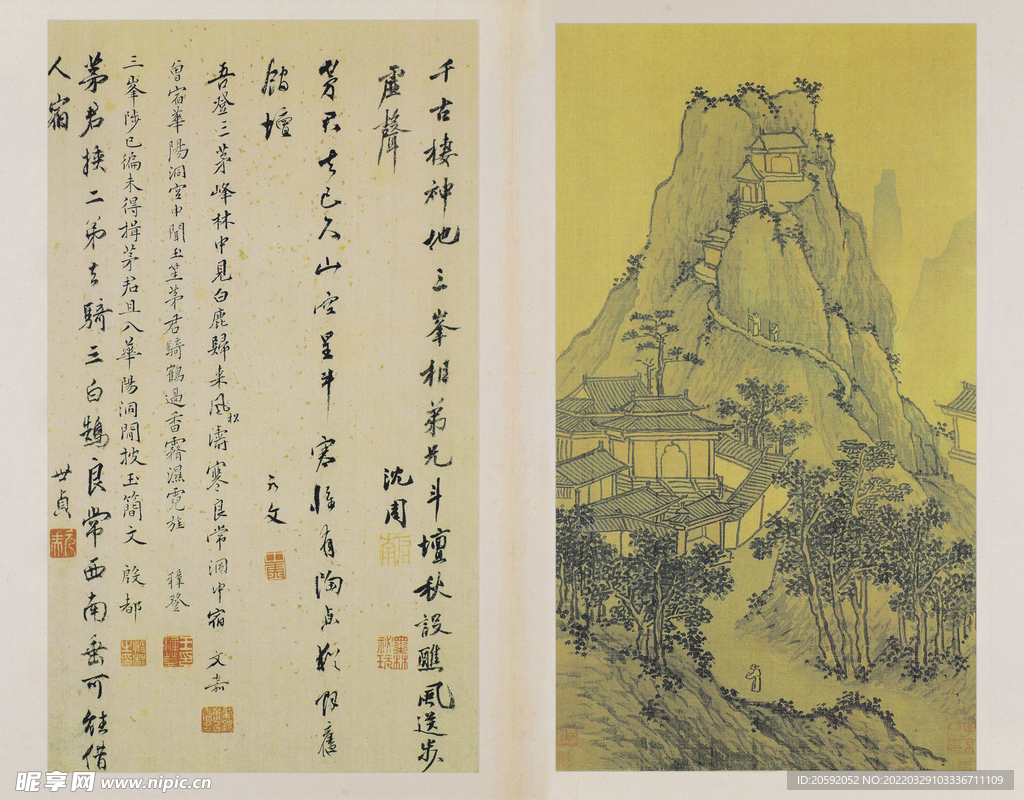 千古棲神地三峯相弟兄斗壇秋設醮風送步
虛聲
沈周
茅君去已久山空星斗寒惟有陶貞於舊
館壇
元文
吾登三茅峰林中見白鹿歸來風濤寒良常洞中宿 文嘉
松
曾宿華陽洞宮中聞玉笙茅君騎鶴過香霧濕霓旌 穉登
三峯陟已徧未得楫茅君且入華陽洞閒披玉簡文 殷都
茅君挾二弟去騎三白鵠良常西南垂可能借
人宿
世貞
昵享网 www.nipic.cn
ID:20592052 NO:20220329103336711109